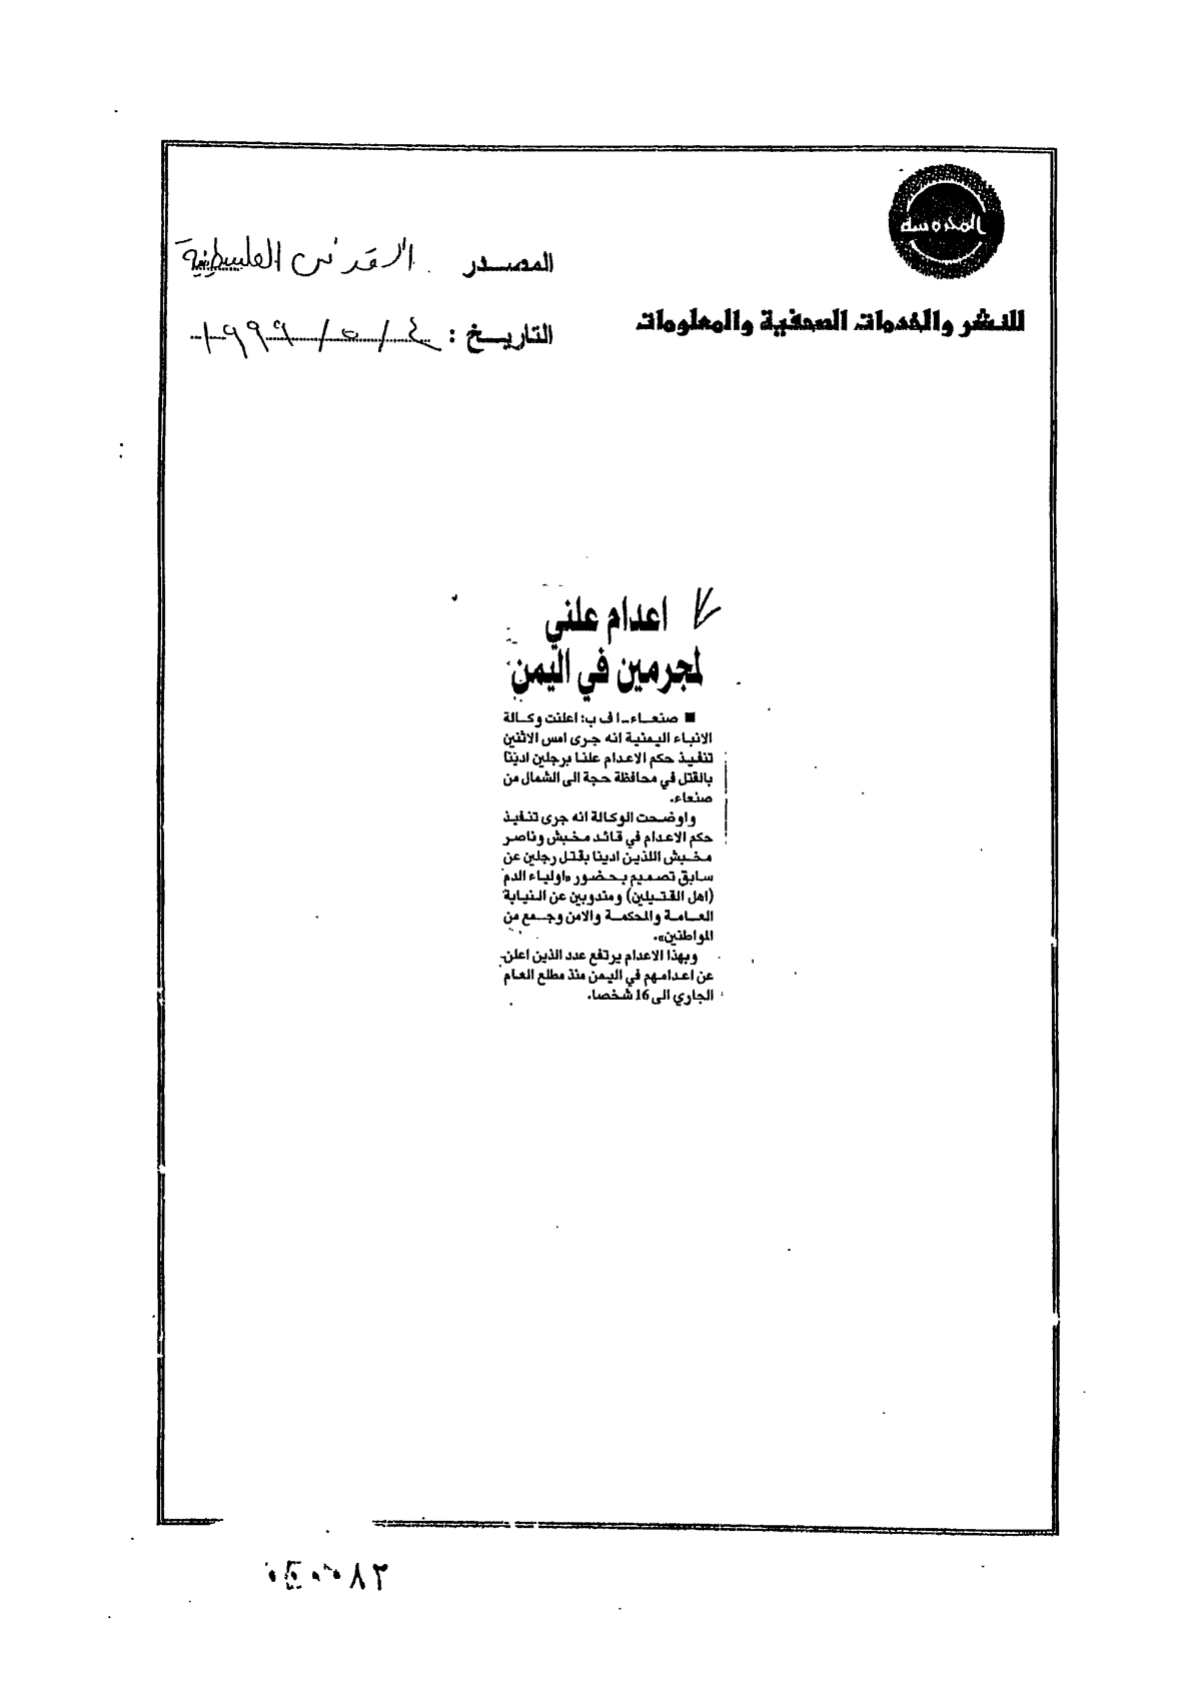 المحروسة
للنشر والخدمات الصحفية والمعلومات
المصدر القدس الفلسطينية
التاريخ : ٤ / ٥ / ١٩٩٩
اعدام علني
لمجرمين في اليمن
■ صنعاء - ا ف ب: اعلنت وكالة
الانباء اليمنية انه جرى امس الاثنين
تنفيذ حكم الاعدام علنا برجلين ادينا
بالقتل في محافظة حجة الى الشمال من
صنعاء.
واوضحت الوكالة انه جرى تنفيذ
حكم الاعدام في قائد مخبش وناصر
مخبش اللذين ادينا بقتل رجلين عن
سابق تصميم بحضور «اولياء الدم
(اهل القتيلين) ومندوبين عن النيابة
العامة والمحكمة والامن وجمع من
المواطنين».
وبهذا الاعدام يرتفع عدد الذين اعلن
عن اعدامهم في اليمن منذ مطلع العام
الجاري الى 16 شخصا.